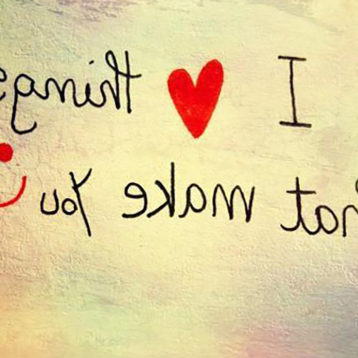 I ❤ things
hat make You